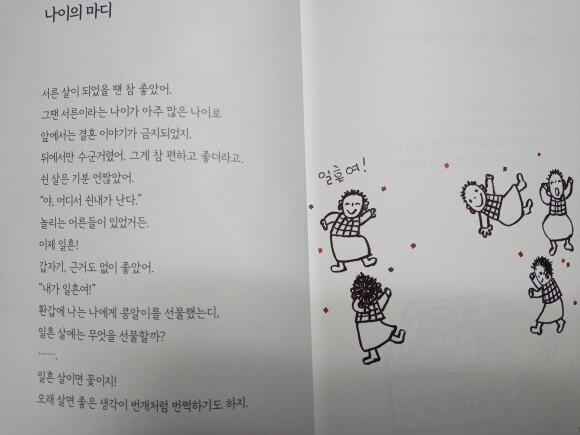 나이의 마디
서른 살이 되었을 땐 참 좋았어.
그땐 서른이라는 나이가 아주 많은 나이로
앞에서는 결혼 이야기가 금지되었지.
뒤에서만 수군거렸어. 그게 참 편하고 좋더라고.
쉰 살은 기분 언짢았어.
“야, 어디서 쉰내가 난다.”
놀리는 어른들이 있었거든.
이제 일흔!
갑자기, 근거도 없이 좋았어.
“내가 일흔여!”
환갑에 나는 나에게 콩알이를 선물했는디,
일흔 살에는 무엇을 선물할까?
…….
일흔 살이면 꽃이지!
오래 살면 좋은 생각이 번개처럼 번쩍하기도 하지.
일흔여!